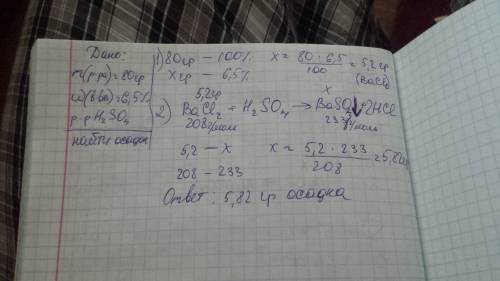 Дано:
m(р-ра)=80гр
ω(в-ва)=6,5%
р-р H₂SO₄
найти осадок
1) 80гр – 100%
x гр – 6,5%
x = 80 · 6,5 / 100 = 5,2 гр (BaCl₂)
2) 5,2гр x
BaCl₂ + H₂SO₄ → BaSO₄↓ + 2HCl
208г/моль 233г/моль
5,2 – x
208 – 233
x = 5,2 · 233 / 208 = 5,82гр
Ответ: 5,82 гр осадка